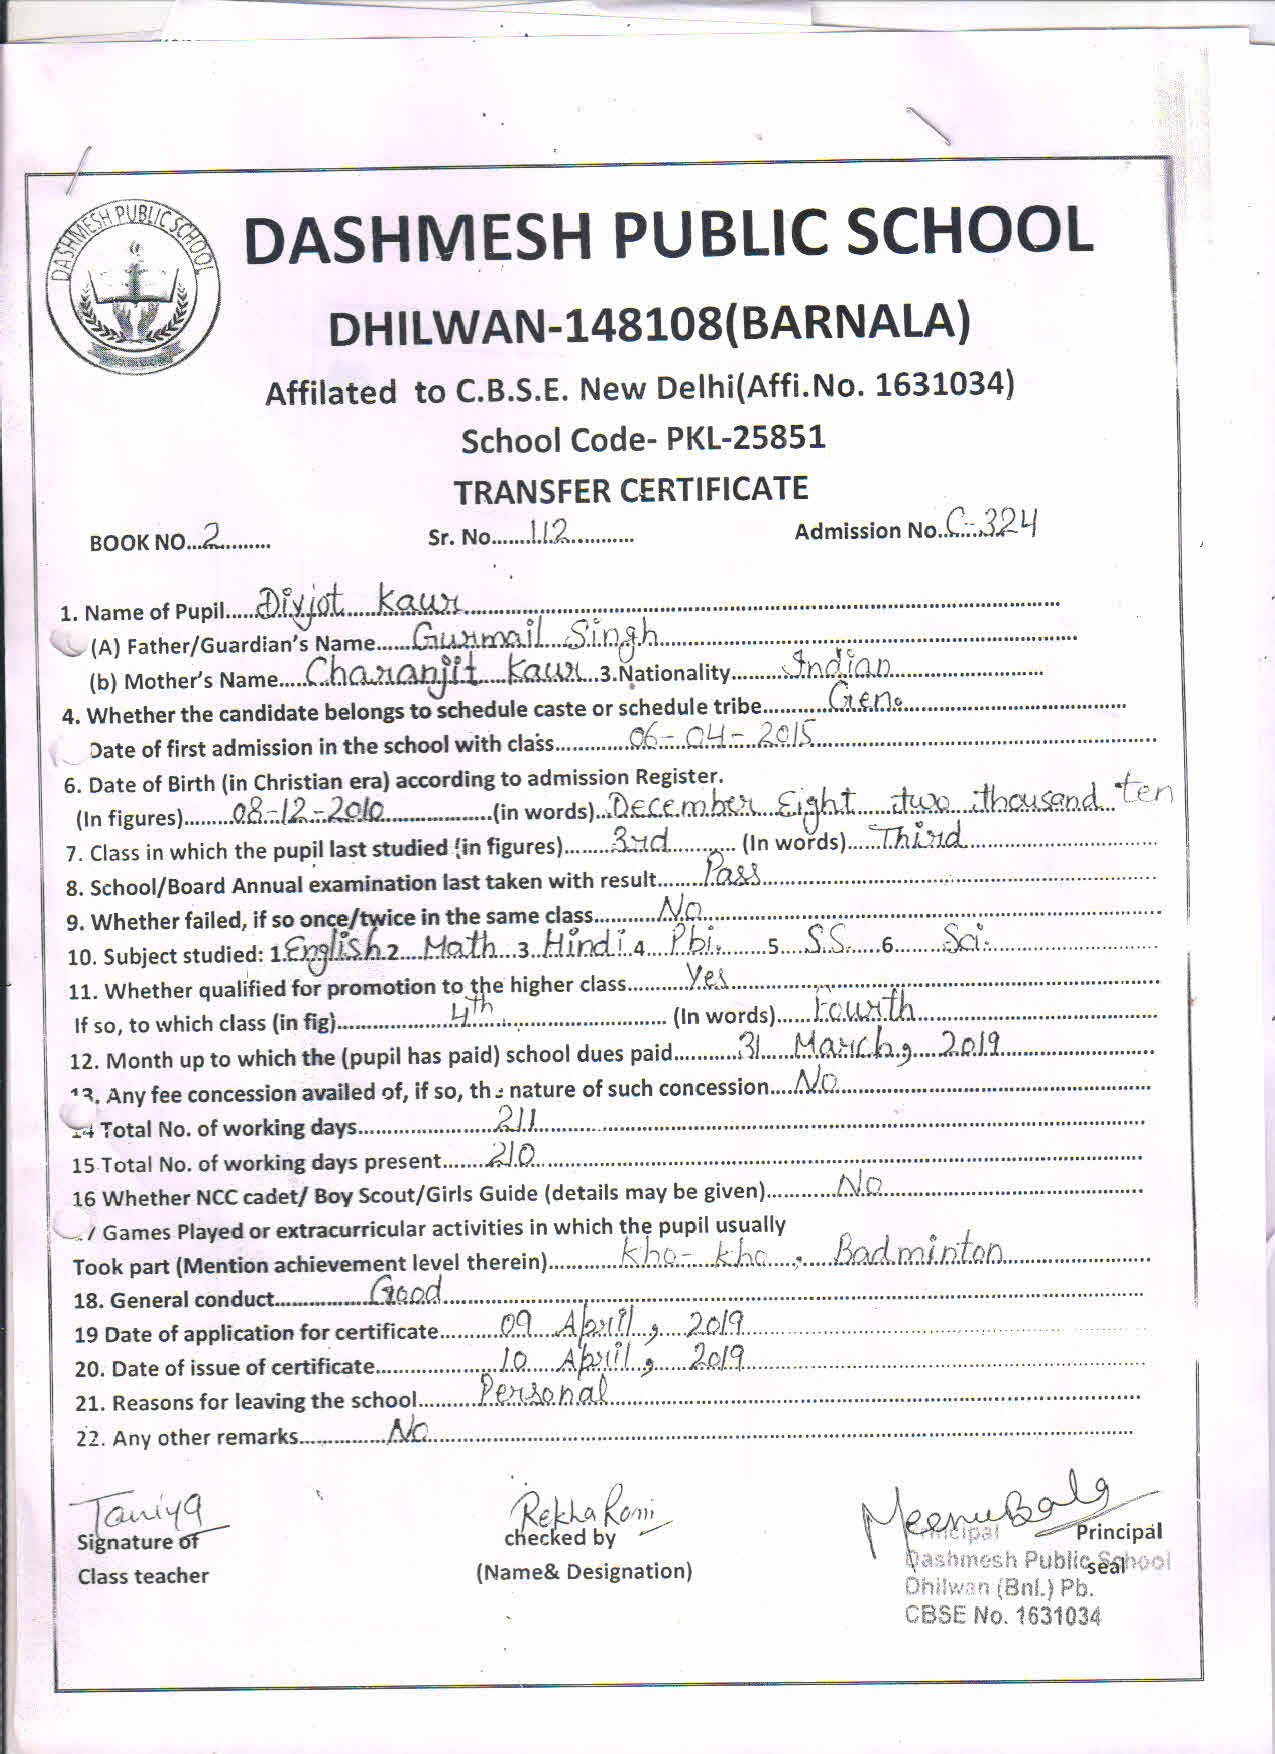 DASHMESH PUBLIC SCHOOL
DASHMESH PUBLIC SCHOOL
DHILWAN-148108(BARNALA)
Affilated to C.B.S.E. New Delhi(Affi.No. 1631034)
School Code- PKL-25851
TRANSFER CERTIFICATE
BOOK NO...2......... Sr. No.......112........... Admission No..C-324
1. Name of Pupil.....Divjot Kaur.....
(A) Father/Guardian's Name......Gurmail Singh.....
(b) Mother's Name.....Charanjit Kaur...3.Nationality.........Indian.....
4. Whether the candidate belongs to schedule caste or schedule tribe...........Gen.....
Date of first admission in the school with class.............06-04-2015.....
6. Date of Birth (in Christian era) according to admission Register.
(In figures)........08-12-2010.....(in words)...December Eight two thousand ten
7. Class in which the pupil last studied (in figures).......3rd..... (In words).....Third.....
8. School/Board Annual examination last taken with result.......Pass.....
9. Whether failed, if so once/twice in the same class...........No.....
10. Subject studied: 1.English.2...Math...3..Hindi..4....Pbi.......5....S.S......6.......Sci......
11. Whether qualified for promotion to the higher class..........Yes.....
If so, to which class (in fig)...................4th..... (In words)......Fourth.....
12. Month up to which the (pupil has paid) school dues paid...........31 March, 2019.....
13. Any fee concession availed of, if so, the nature of such concession....No.....
14 Total No. of working days.......................211.....
15 Total No. of working days present.......210.....
16 Whether NCC cadet/ Boy Scout/Girls Guide (details may be given)............No.....
/ Games Played or extracurricular activities in which the pupil usually
Took part (Mention achievement level therein)............kho-kho, Badminton.....
18. General conduct................Good.....
19 Date of application for certificate..........09 April, 2019.....
20. Date of issue of certificate....................10 April, 2019.....
21. Reasons for leaving the school..........Personal.....
22. Any other remarks...............No.....
Taniya Rekha Rani Meenu Bala
Signature of checked by Principal Principal
Class teacher (Name& Designation) Dashmesh Public School seal
Dhilwan (Bnl.) Pb.
CBSE No. 1631034